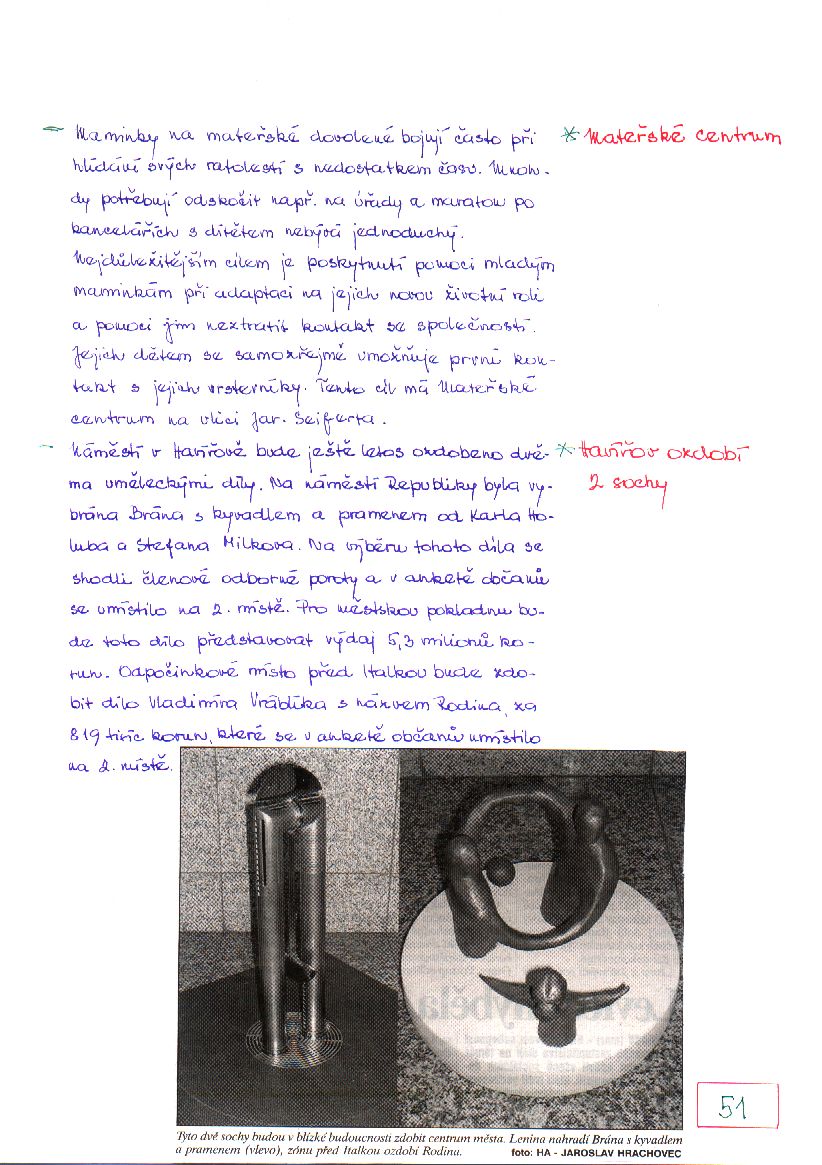 - Maminky na mateřské dovolené bojují často při
* Mateřské centrum
hlídání svých ratolestí s nedostatkem času. Mnoh-
dy potřebují odskočit např. na úřady a maraton po
kancelářích s dítětem nebývá jednoduchý.
Nejdůležitějším cílem je poskytnutí pomoci mladým
maminkám při adaptaci na jejich novou životní roli
a pomoci jim neztratit kontakt se společností.
Jejich dětem se samozřejmě umožňuje první kon-
takt s jejich vrstevníky. Tento cíl má Mateřské
centrum na ulici Jar. Seiferta.
- Náměstí v Havířově bude ještě letos ozdobeno dvě-
* Havířov ozdobí
2 sochy
ma uměleckými díly. Na náměstí Republiky byla vy-
brána Brána s kyvadlem a pramenem od Karla Ho-
luba a Stefana Milkova. Na výběru tohoto díla se
shodli členové odborné poroty a v anketě občanů
se umístilo na 2. místě. Pro městskou pokladnu bu-
de toto dílo představovat výdaj 5,3 milionů ko-
run. Odpočinkové místo před Italkou bude zdo-
bit dílo Vladimíra Vráblíka s názvem Rodina, za
819 tisíc korun, které se v anketě občanů umístilo
na 2. místě.
51
Tyto dvě sochy budou v blízké budoucnosti zdobit centrum města. Lenina nahradí Brána s kyvadlem
a pramenem (vlevo), zónu před Italkou ozdobí Rodina. foto: HA - JAROSLAV HRACHOVEC